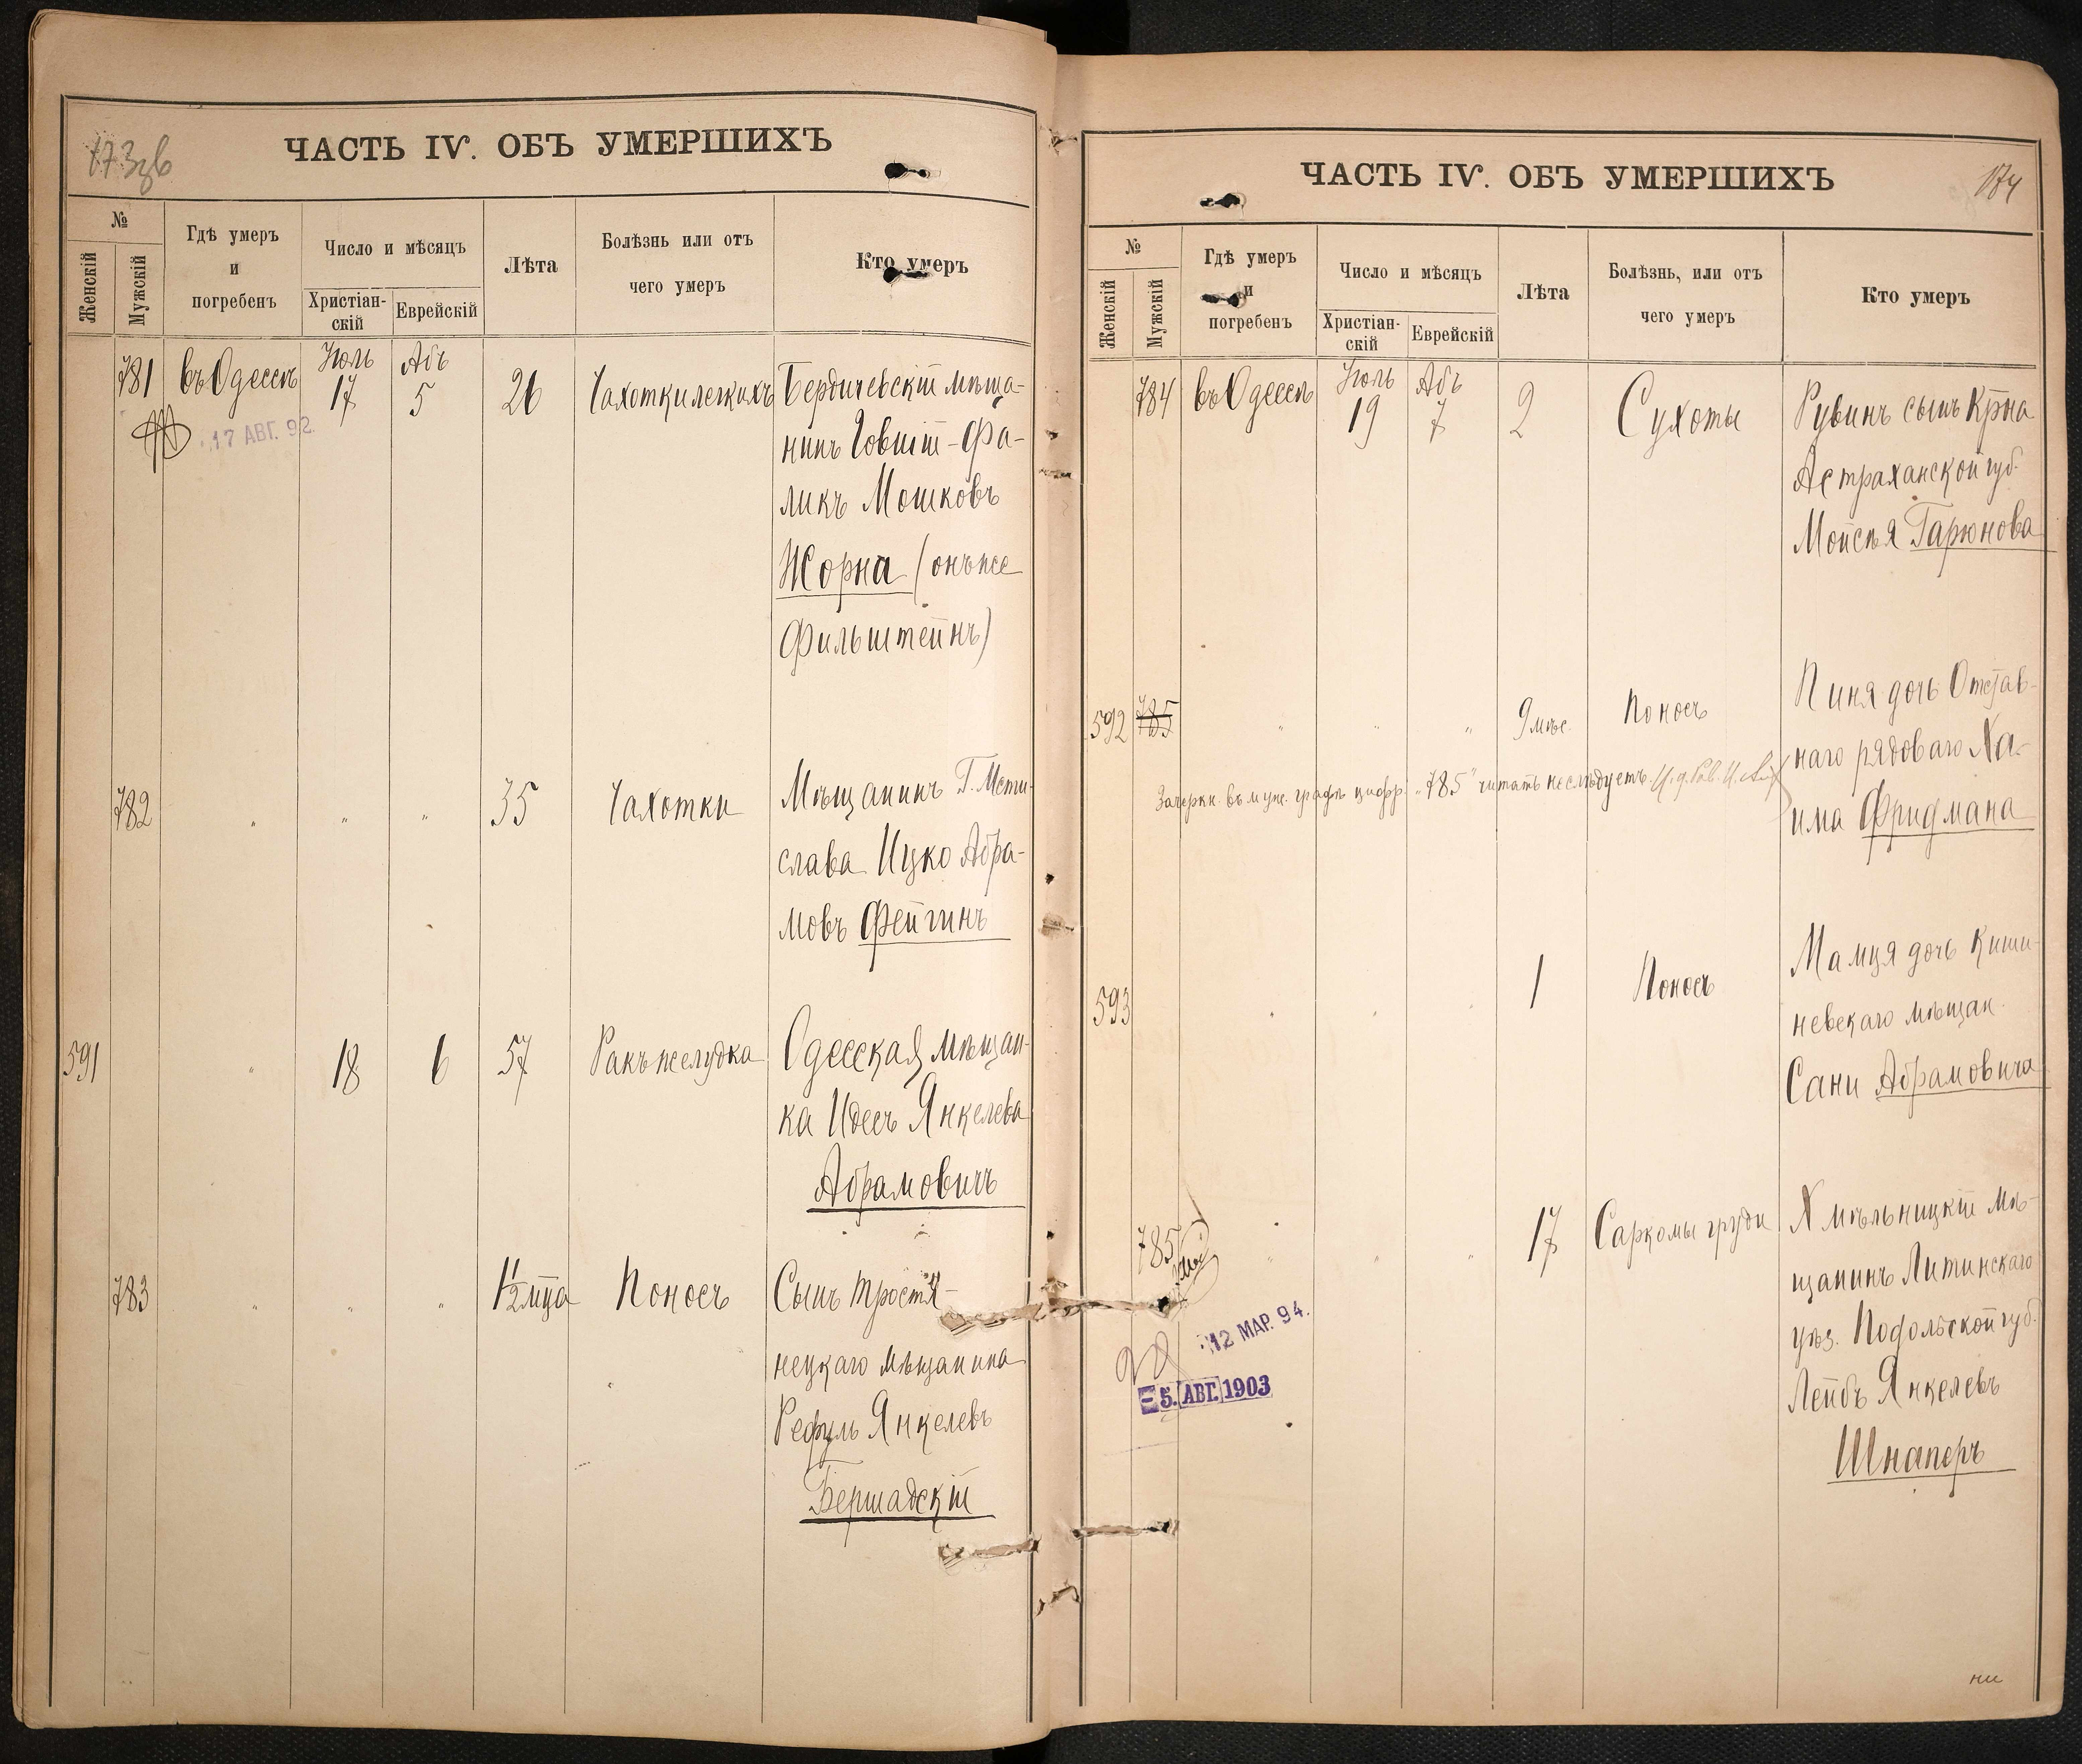 173зв
ЧАСТЬ IV. ОБЪ УМЕРШИХЪ
№
Женскій
Мужскій
Гдѣ умеръ
и
погребенъ
Число и мѣсяцъ
Христіан-
скій
Еврейскій
Лѣта
Болѣзнь или отъ
чего умеръ
Кто умеръ
781 въ Одессѣ Іюль 17 Абъ 5 26 Чахотки легкихъ Бердичевскій мѣща-
17 АВГ. 92.
нинъ Іовшій-Фа-
ликъ Мошковъ
Жорна (онъ же
Фильштейнъ)
782 " " " 35 Чахотки Мѣщанинъ Г. Мсти-
слава Ицко Абра-
мовъ Фейгинъ
591 " 18 6 57 Ракъ желудка Одесская мѣщан-
ка Идесъ Янкелева
Абрамовичъ
783 " " " 1½ мца Поносъ Сынъ тростя-
нецкаго мѣщанина
Рефуль Янкелевъ
Бершадскій
174
ЧАСТЬ IV. ОБЪ УМЕРШИХЪ
№
Женскій
Мужскій
Гдѣ умеръ
и
погребенъ
Число и мѣсяцъ
Христіан-
скій
Еврейскій
Лѣта
Болѣзнь, или отъ
чего умеръ
Кто умеръ
784 въ Одессѣ Іюль 19 Абъ 7 2 Сухоты Рувинъ сынъ Крна
Астраханской губ.
Мойсѣя Гарюнова
592 785 " " " 9 мѣс. Поносъ Пиня дочь Отстав-
наго рядоваго Ха-
Зачеркн. въ муж. графѣ цифр. "785" читать не слѣдуетъ. И. д. Рав.
има Фридмана
593 " " " 1 Поносъ Мамця дочь Киши-
невскаго мѣщан.
Сани Абрамовича
785 " " " 17 Саркомы груди Хмѣльницкій мѣ-
щанинъ Литинскаго
уѣз. Подольской губ.
Лейбъ Янкелевъ
Шнаперъ
12 МАР. 94.
5. АВГ. 1903
ни